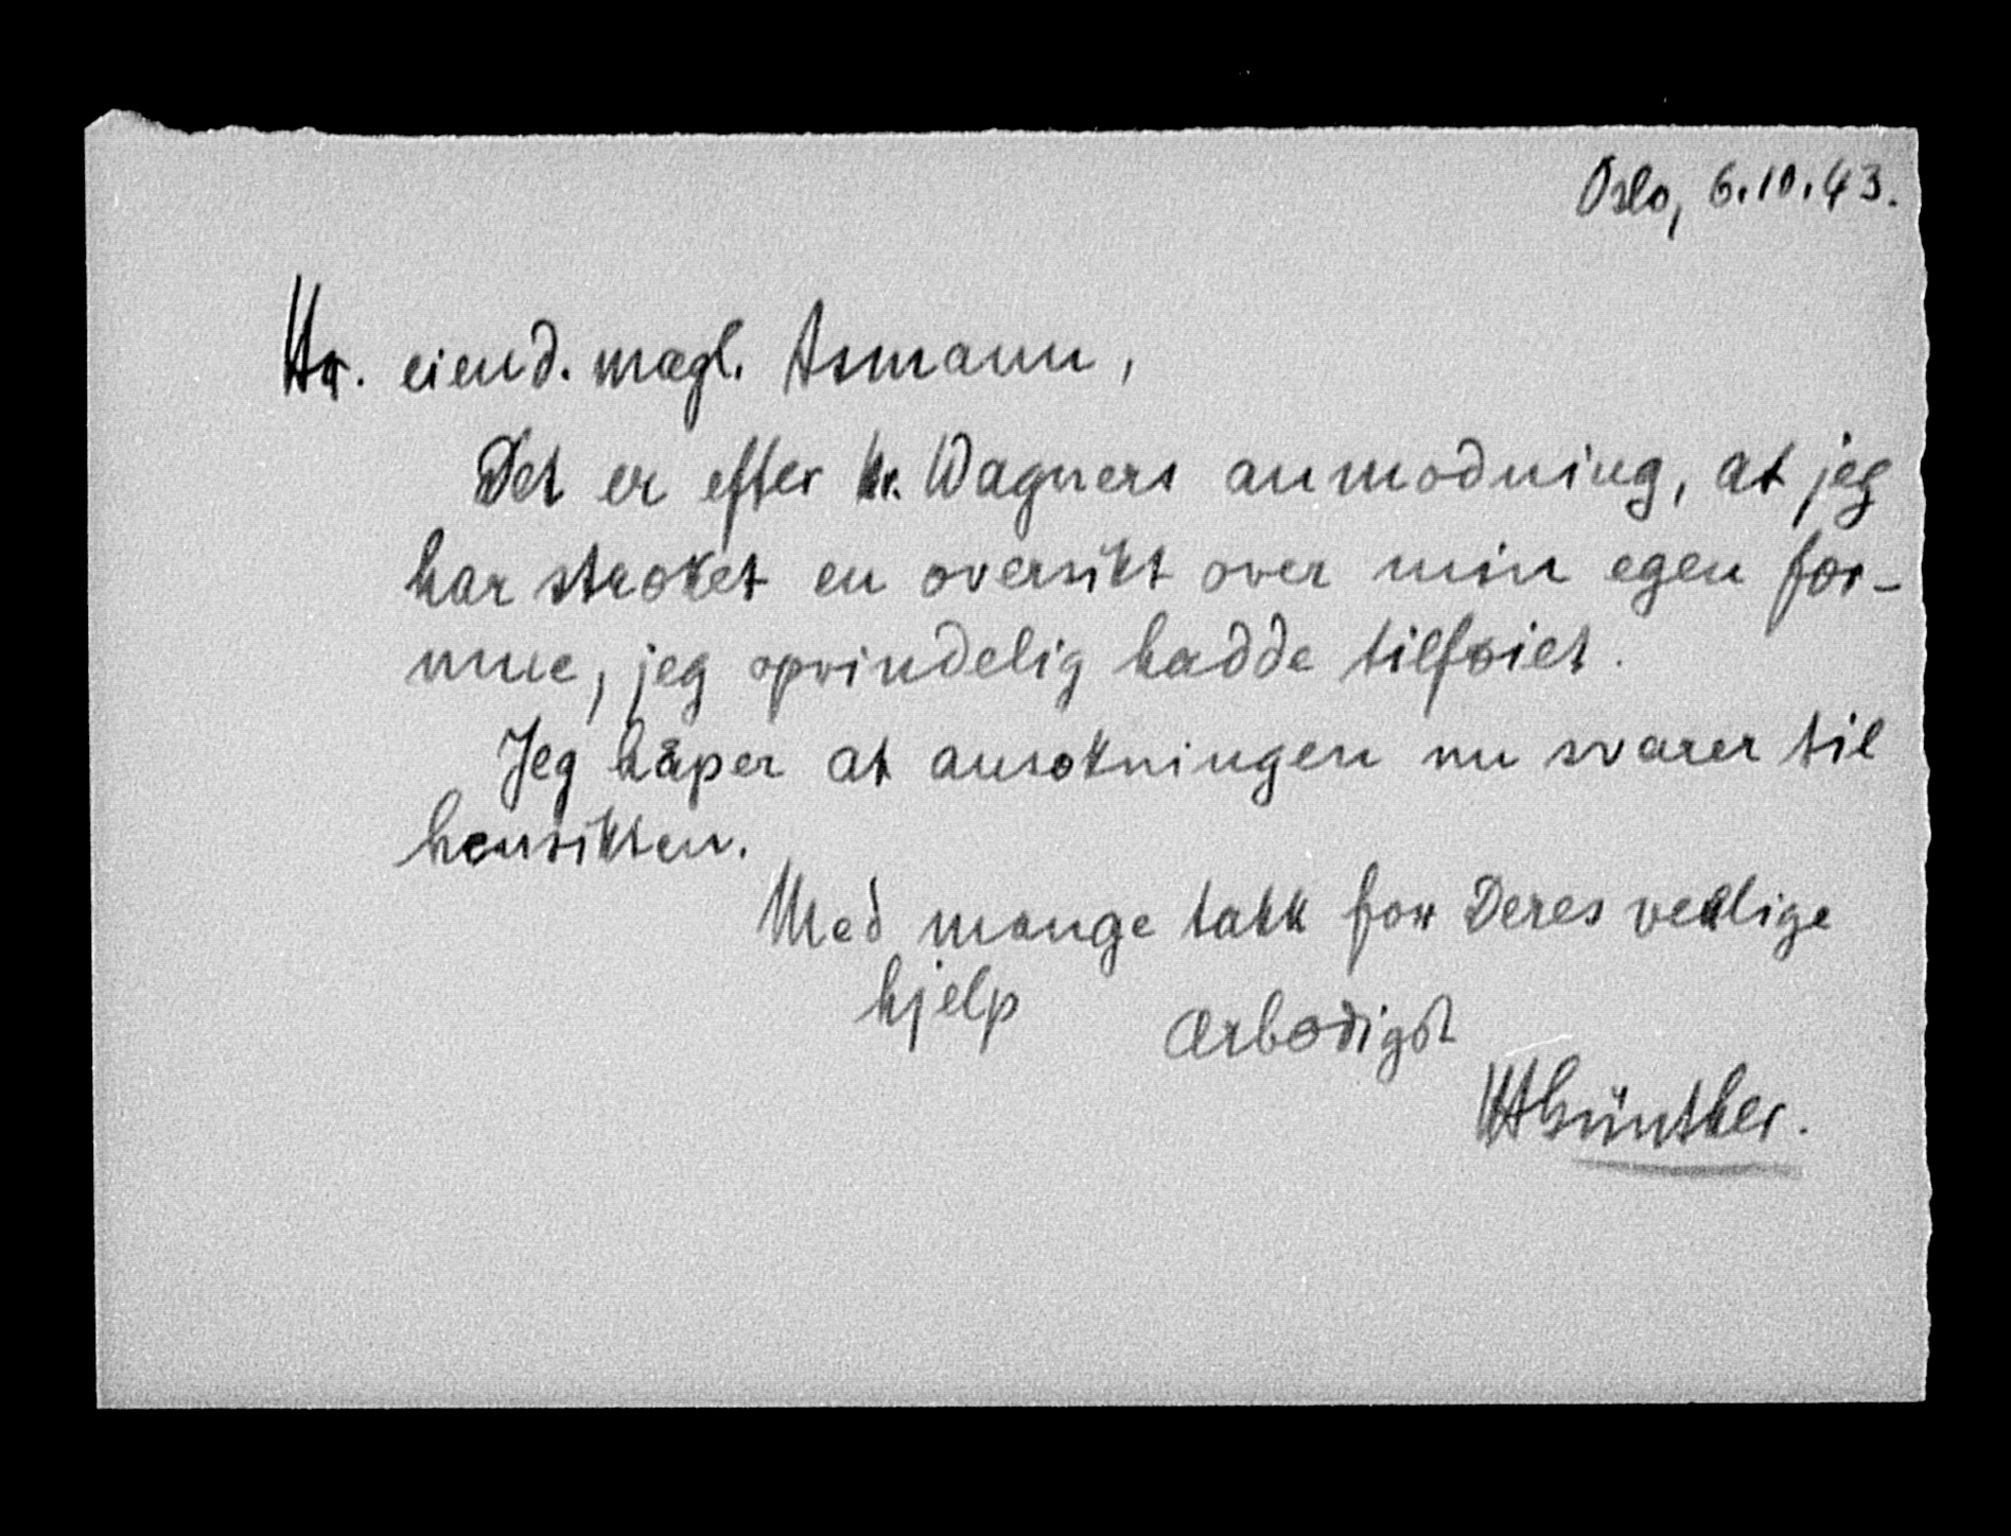 Oslo, 6.10.43.
Hr. eiend. mægl. Asmann,
Det er efter hr. Wagners anmodning, at jeg
har strøket en oversikt over min egen for-
mue, jeg oprindelig hadde tilføiet.
Jeg håper at ansøkningen nu svarer til
hensikten.
Med mange takk for Deres venlige
hjelp
Ærbødigst
HHGünther.